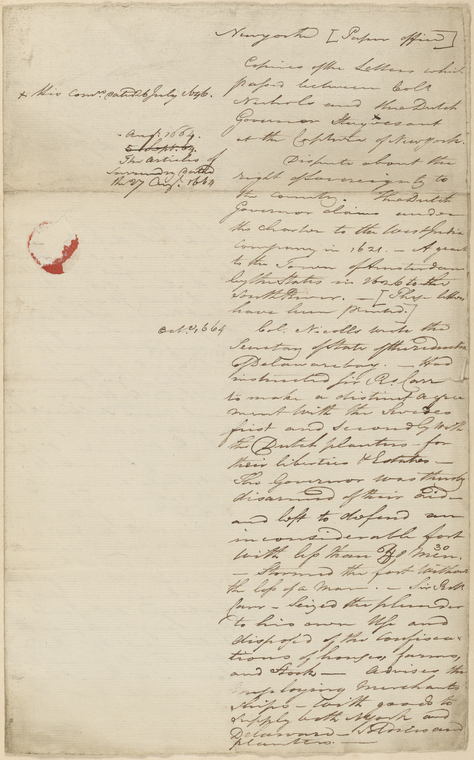 Newyorke [Paper office]
Copies of the Letters which
passed between Coll
Nicholls and the Dutch
Governor Stuyvesant
at the Capture of Newyork.
x his Comn. dated 26 July 1646.
- Augt. 1664.
5 Sept. 64
The articles of
Surrender dated
the 27 Augt. 1664
Dispute about the
right of Sovereignty to
the country. The Dutch
Governor claims under
the Charter to the West India
Company in 1621. - A grant
to the Town of Amsterdam
by the States in 1626 to the
South River. - [These letters
have been printed.]
Octr. 1664
Col. Nicolls wrote the
Secretary of State of the reduction
of Delawarebay. - Had
instructed Sir R. Carr
to make a distinct agree
ment with the Swedes
first and secondly with
the Dutch planters - for
their liberties & Estates -
The Governor was thereby
disarmed of their aid -
and left to defend an
inconsiderable fort
with less than 50 men. 30
- Stormed the fort without
the loss of a man. - Sir Robt
Carr - Seized the plunder
to his own use and
disposed of the Confisca-
tions of houses, farms,
and Stock - advises the
employing Merchants
Ships - with goods to
supply both NYork and
Delaware - Soldiers and
planters. -